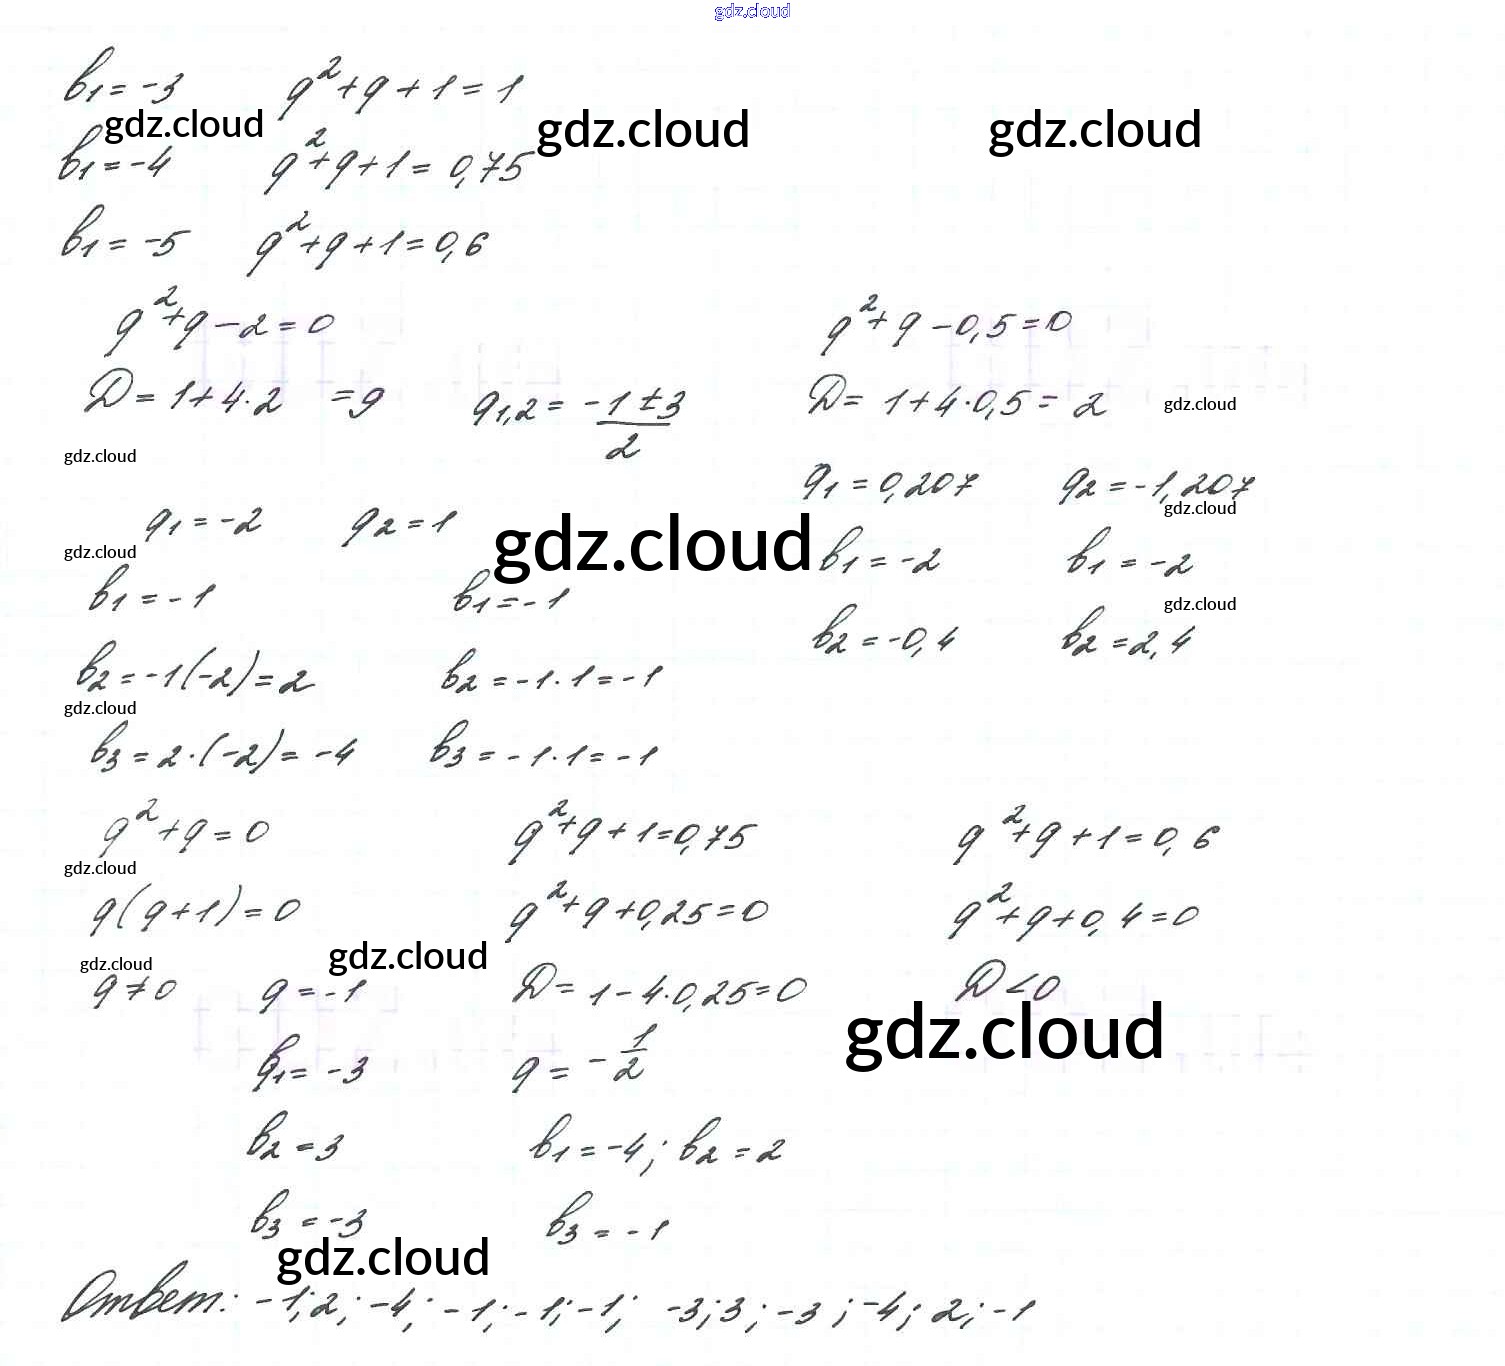 gdz.cloud
b₁ = -3 q² + q + 1 = 1
gdz.cloud gdz.cloud gdz.cloud
b₁ = -4 q² + q + 1 = 0,75
b₁ = -5 q² + q + 1 = 0,6
q² + q - 2 = 0 q² + q - 0,5 = 0
D = 1 + 4·2 = 9 q₁,₂ = (-1 ± 3)/2 D = 1 + 4·0,5 = 2 gdz.cloud
gdz.cloud
q₁ = 0,207 q₂ = -1,207
gdz.cloud
q₁ = -2 q₂ = 1 gdz.cloud
gdz.cloud b₁ = -2 b₁ = -2
b₁ = -1 b₁ = -1 gdz.cloud
b₂ = -0,4 b₂ = 2,4
b₂ = -1(-2) = 2 b₂ = -1·1 = -1
gdz.cloud
b₃ = 2·(-2) = -4 b₃ = -1·1 = -1
q² + q = 0 q² + q + 1 = 0,75 q² + q + 1 = 0,6
gdz.cloud
q(q + 1) = 0 q² + q + 0,25 = 0 q² + q + 0,4 = 0
gdz.cloud gdz.cloud
q ≠ 0 q = -1 D = 1 - 4·0,25 = 0 D < 0
gdz.cloud
b₁ = -3 q = -1/2
b₂ = 3 b₁ = -4; b₂ = 2
b₃ = -3 b₃ = -1
gdz.cloud
Ответ: -1; 2; -4; -1; -1; -1; -3; 3; -3; -4; 2; -1